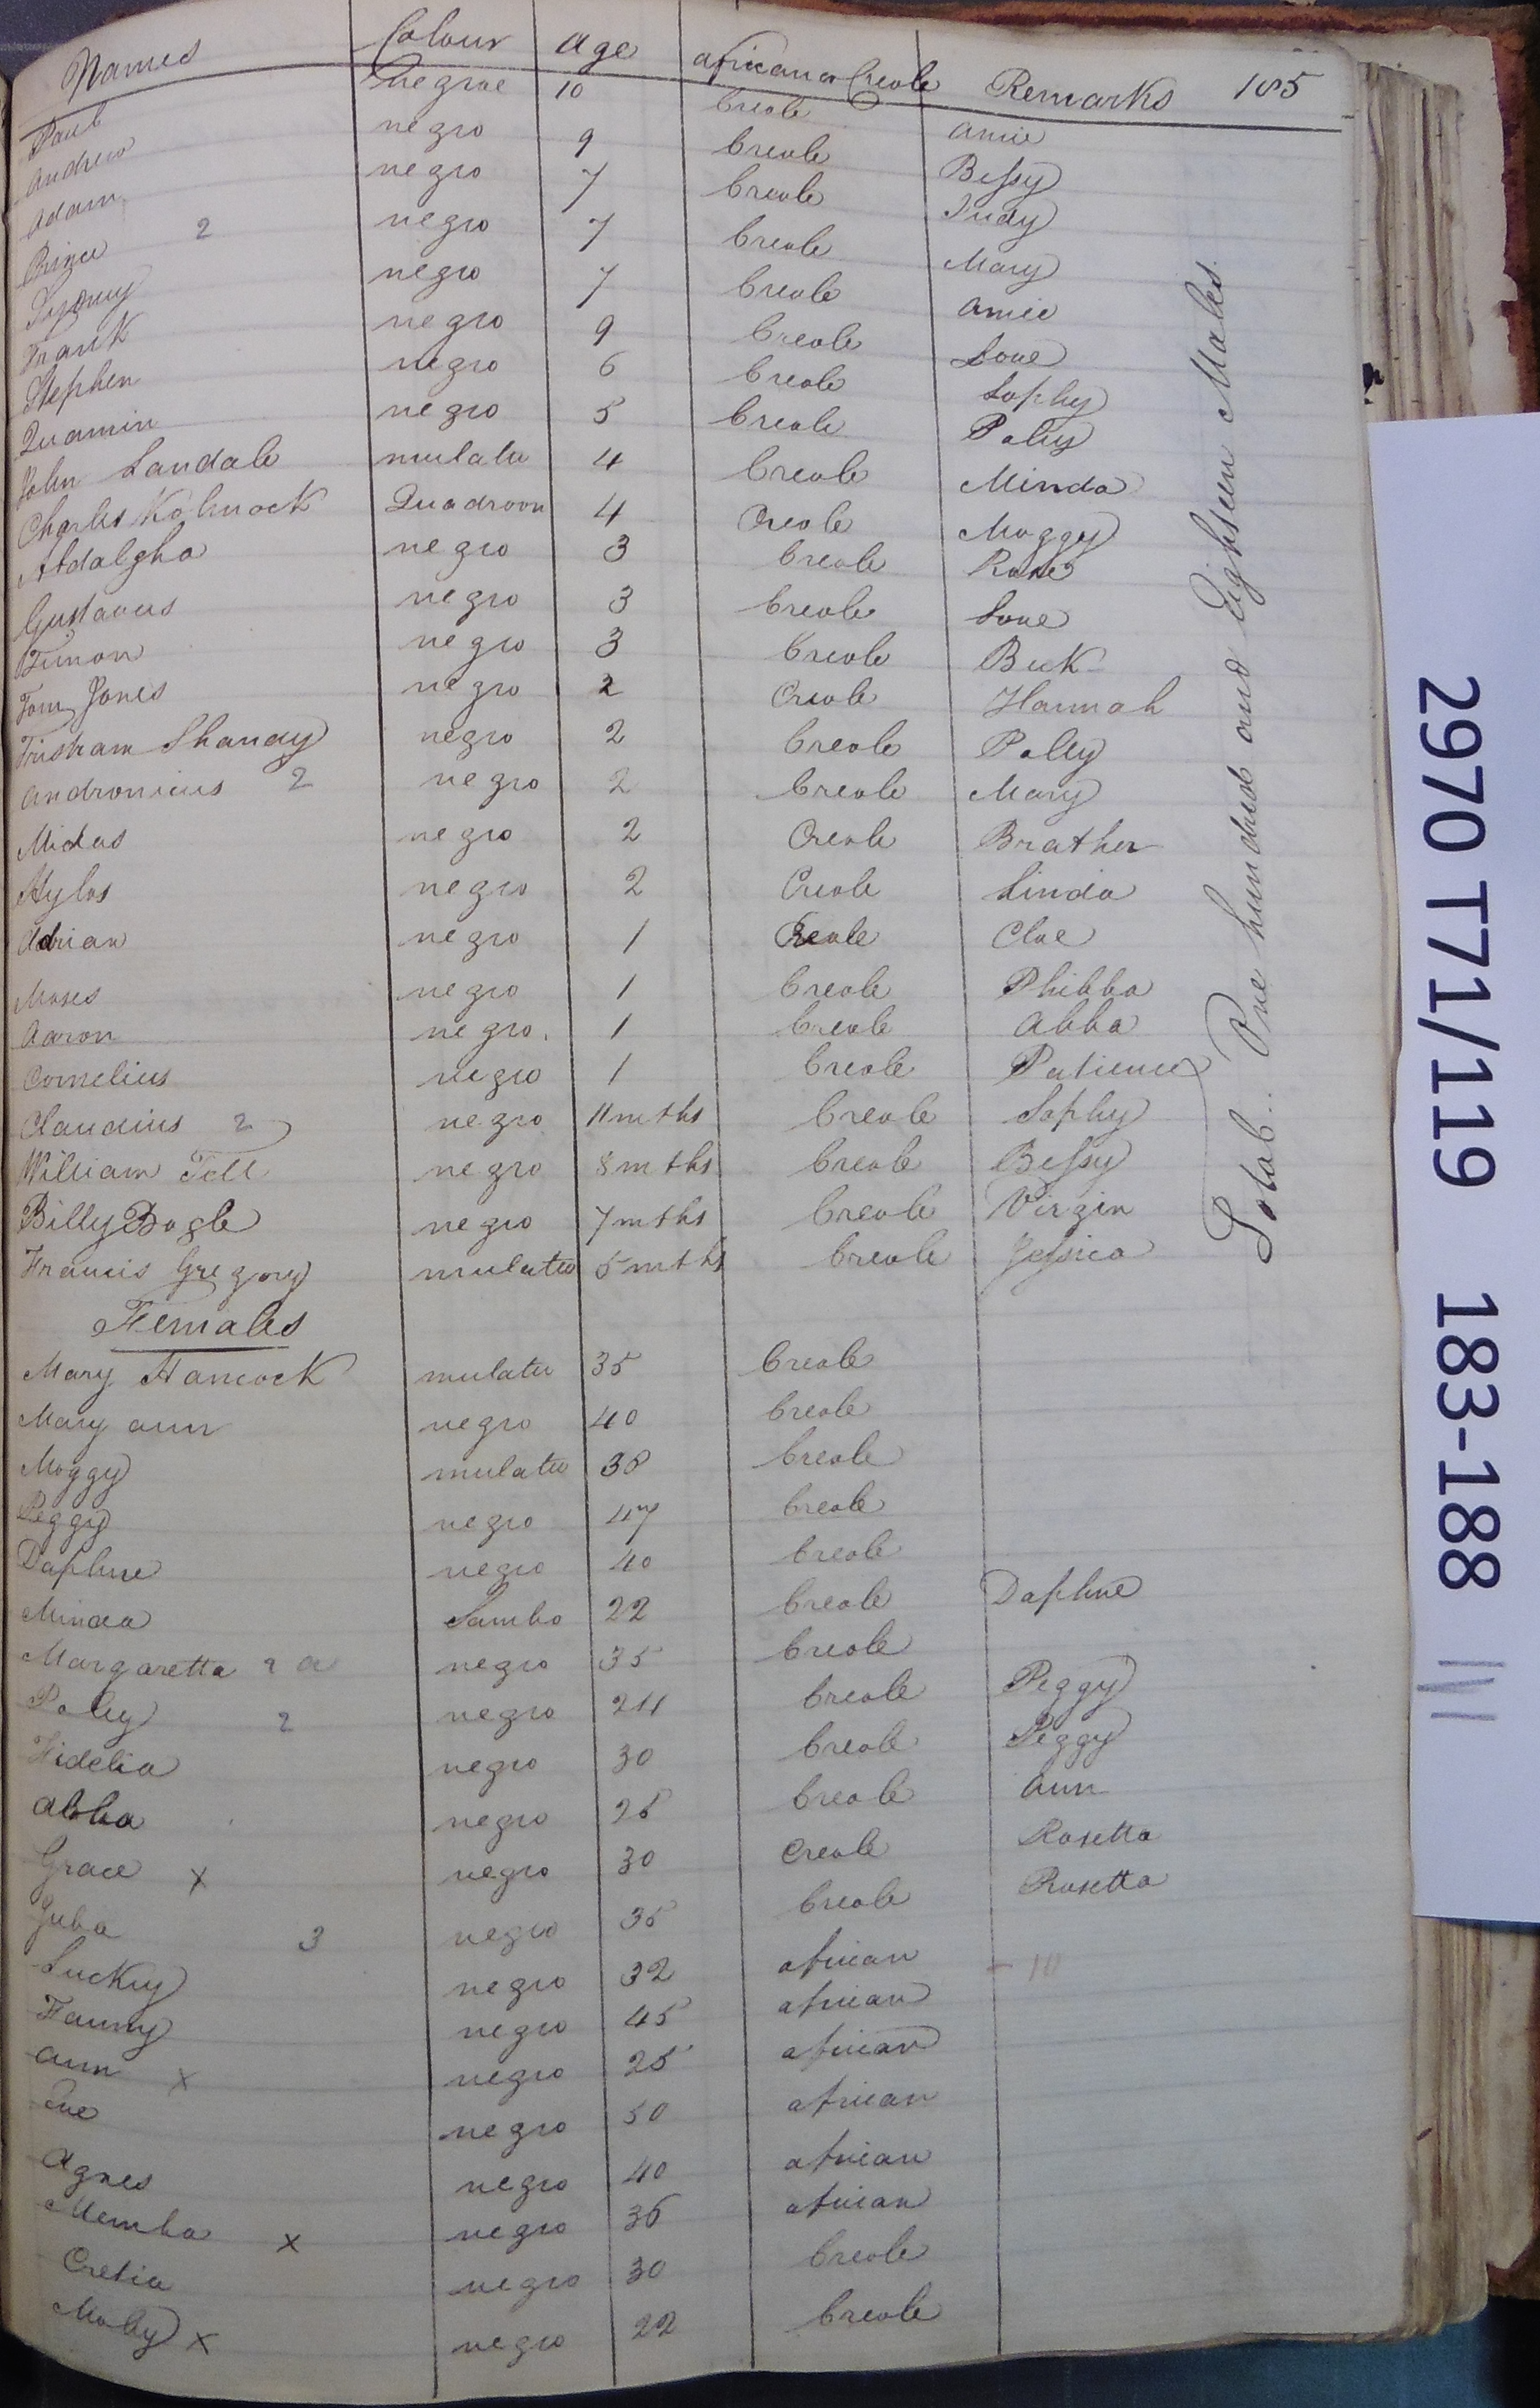 Names Colour Age African or Creole Remarks 185
Paul negroe 10 Creole Amie
Andrew negro 9 Creole Bessy
Adam negro 7 Creole Judy
Prince 2 negro 7 Creole Mary
Sydney negro 7 Creole Amie
Frank negro 9 Creole Love
Stephen negro 6 Creole Sophy
Quamin negro 5 Creole Polly
John Landale mulatto 4 Creole Minda
Charles Quadroon 4 Creole Moggy
negro 3 Creole Rose
Gustavus negro 3 Creole Love
Timon negro 3 Creole Beck
Tom Jones negro 2 Creole Hannah
Tristram Shandy negro 2 Creole Polly
Andronicus 2 negro 2 Creole Mary
Midas negro 2 Creole Brather
Hylas negro 2 Creole Linda
Adrian negro 1 Creole Cloe
Moses negro 1 Creole Phibba
Aaron negro. 1 Creole Abba
Cornelius negro 1 Creole Patience
Claudius 2 negro 11 mths Creole Sophy
William Tell negro 8 mths Creole Bessy
Billy Bogle negro 7 mths Creole Virgin
Francis Gregory mulatto 5 mths Creole Jessica
Total.. One hundred and Eighteen Males.
Females
Mary Hancock mulatto 35 Creole
Mary Ann negro 40 Creole
Moggy mulatto 38 Creole
Peggy negro 47 Creole
Daphne negro 40 Creole
Minda Sambo 22 Creole Daphne
Margaretta 2 a negro 35 Creole
Polly 2 negro 24 Creole Peggy
Fidelia negro 30 Creole Peggy
Abba negro 25 Creole Ann
Grace x negro 30 Creole Rosetta
Juba 3 negro 35 Creole Rosetta
Luckey negro 32 African - 10
Fanny negro 45 African
Ann x negro 25 African
Eve negro 50 African
Agnes negro 40 African
Memba x negro 35 African
Cretia negro 30 Creole
Molly x negro 22 Creole
2970 T71/119 183-188